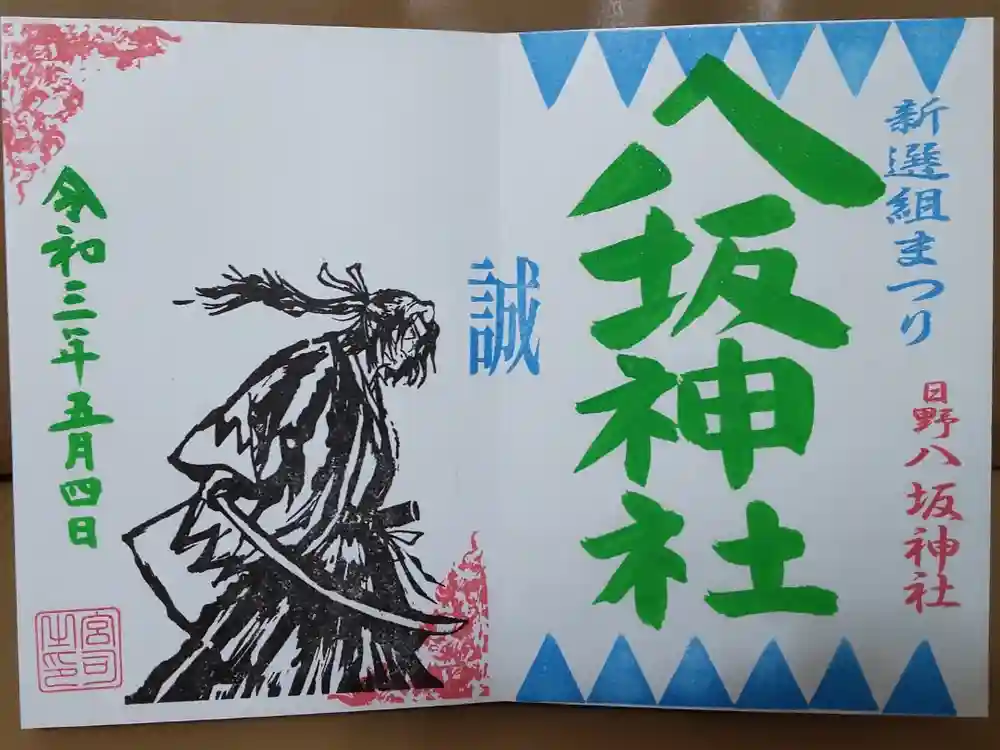 新選組まつり
日野八坂神社
八坂神社
誠
令和三年五月四日
宮司之印